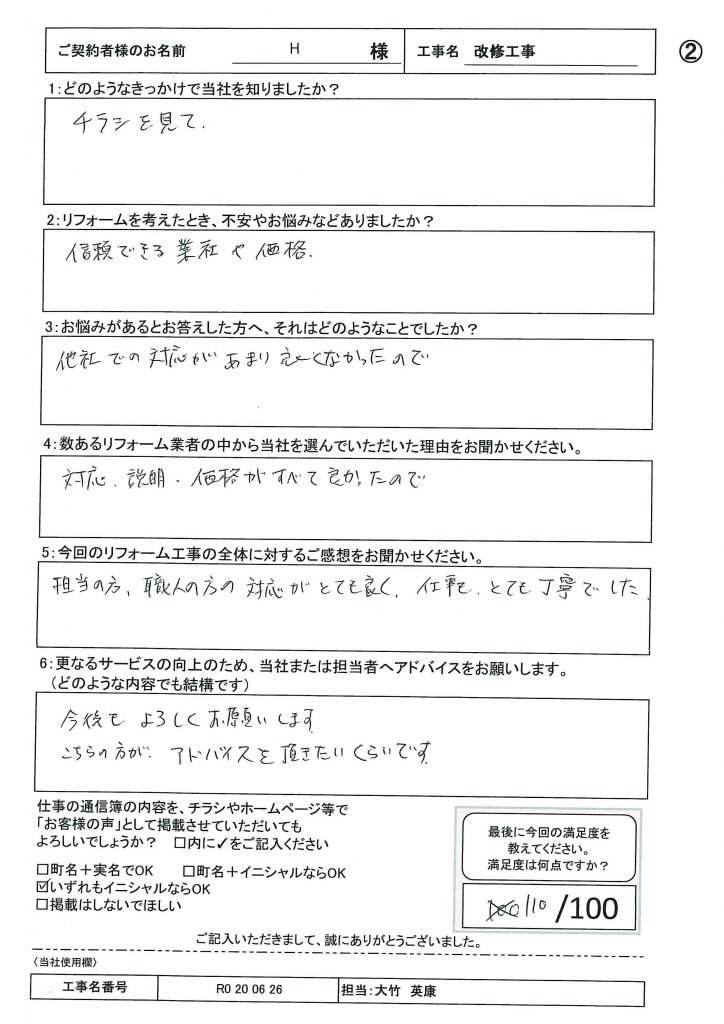 ご契約者様のお名前 H 様 工事名 改修工事 ②
1：どのようなきっかけで当社を知りましたか？
チラシを見て.
2：リフォームを考えたとき、不安やお悩みなどありましたか？
信頼できる業社や価格.
3：お悩みがあるとお答えした方へ、それはどのようなことでしたか？
他社での対応があまり良くなかったので
4：数あるリフォーム業者の中から当社を選んでいただいた理由をお聞かせください。
対応、説明、価格がすべて良かったので
5：今回のリフォーム工事の全体に対するご感想をお聞かせください。
担当の方、職人の方の対応がとても良く、仕事も、とても丁寧でした.
6：更なるサービスの向上のため、当社または担当者へアドバイスをお願いします。
（どのような内容でも結構です）
今後もよろしくお願いします
こちらの方が、アドバイスを頂きたいくらいです
仕事の通信簿の内容を、チラシやホームページ等で
「お客様の声」として掲載させていただいても
よろしいでしょうか？ □内に✓をご記入ください
□町名＋実名でOK □町名＋イニシャルならOK
☑いずれもイニシャルならOK
□掲載はしないでほしい
最後に今回の満足度を
教えてください。
満足度は何点ですか？
110/100
ご記入いただきまして、誠にありがとうございました。
〈当社使用欄〉
工事名番号 R0 20 06 26 担当：大竹 英康